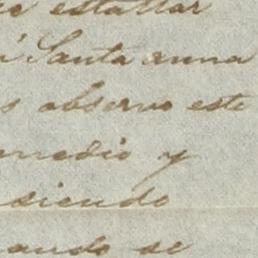 estallar
á Santa anna
s observo este
medio y
siendo
ando se